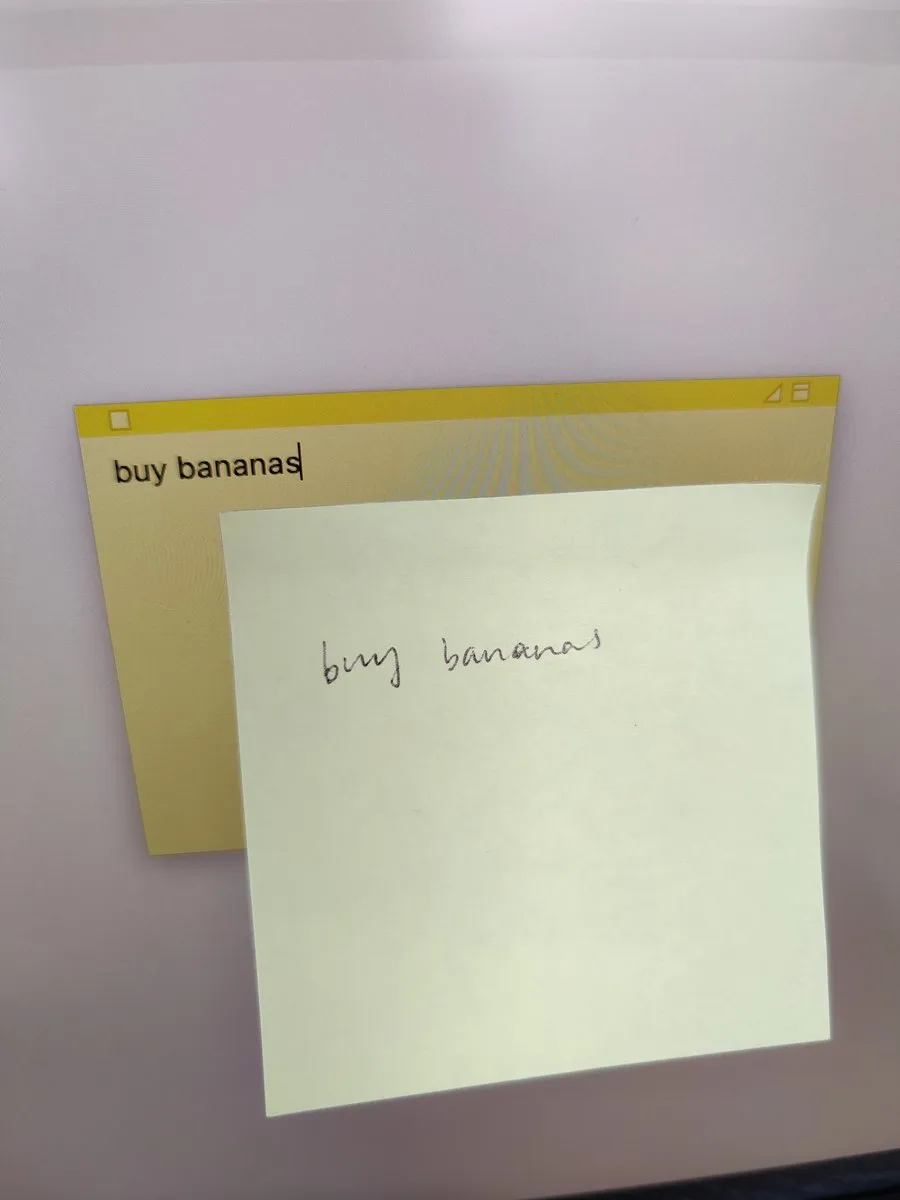 buy bananas
buy bananas